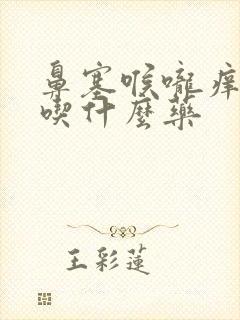 鼻塞喉嚨痒
喫什麼藥
王彩蓮